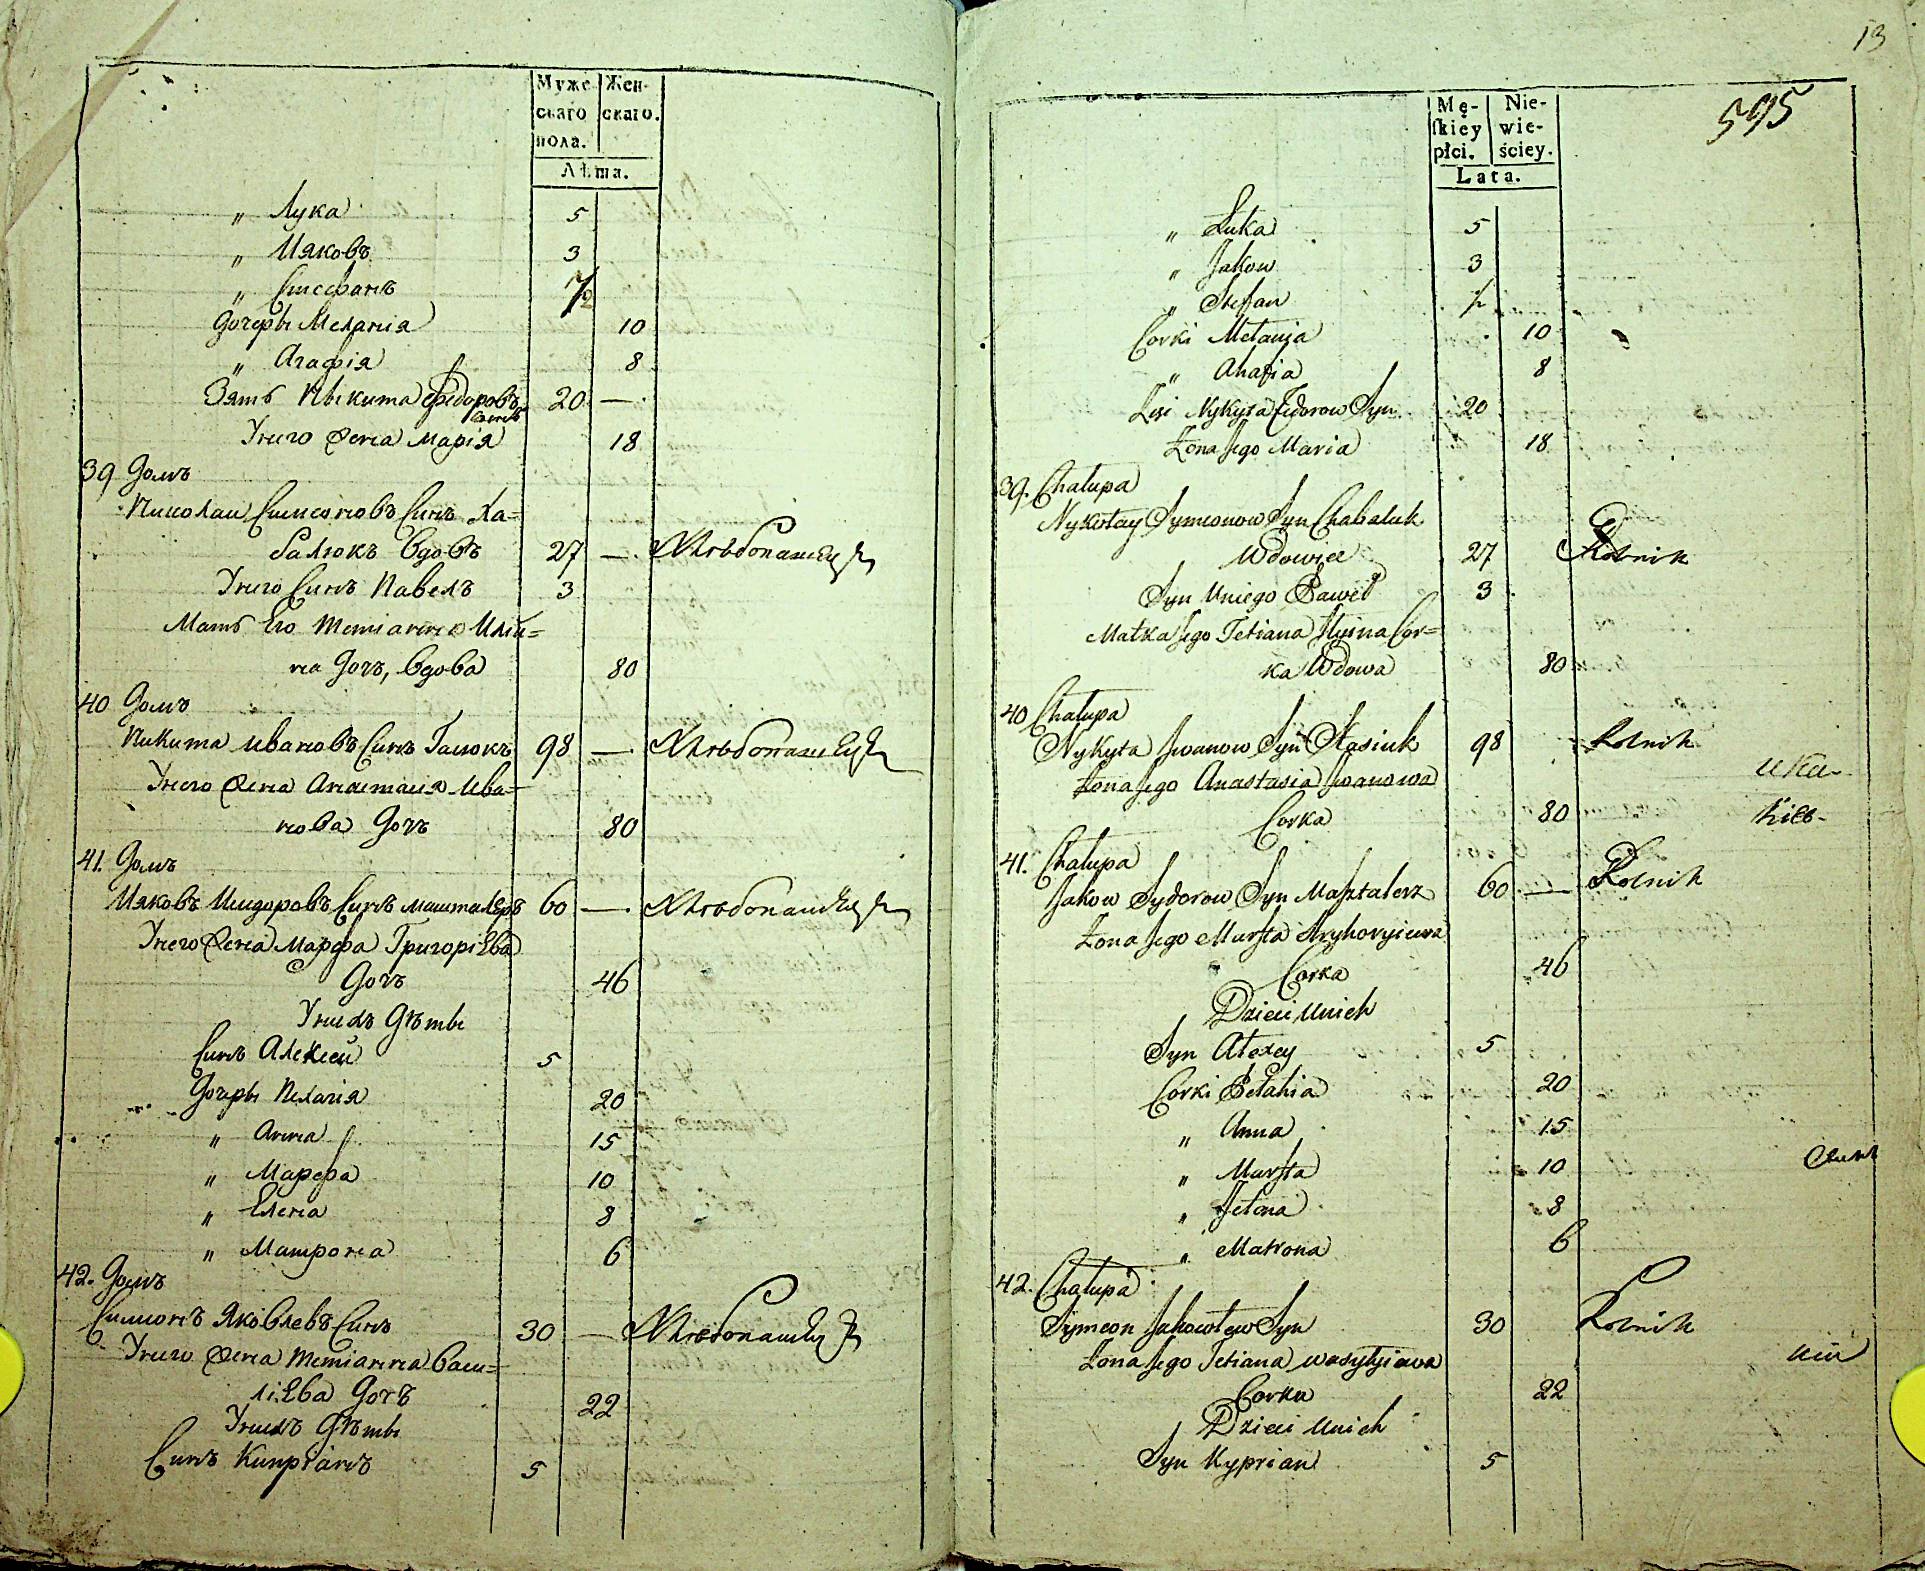 Муже- Жен-
скаго скаго.
пола.
Лѣта.
„ Лука 5
„ Ияковъ 3
„ Стефанъ 1/2
Дочеры Меланія 10
„ Агафія 8
Зять Никита Федоровъ 20 —
Синъ
Унего Жена Марія 18
39 Домъ
Николаи Симеоновъ Синъ Ха=
балюкъ Вдовъ 27 — Хлѣбопашецъ
Унего Синъ Павелъ 3
Мать Его Тетіанна Илій=
на Дочъ, Вдова 80
40 Домъ
Никита Ивановъ Синъ 98 — Хлѣбопашецъ
Унего Жена Анастасія Ива-
нова Дочъ 80
41. Домъ
Ияковъ Исидоровъ Синъ Машталеръ 60 — Хлѣбопашецъ
Унего Жена Марфа Григоріева
Дочъ 46
Унихъ Дѣты
Синъ Алексей 5
Дочеры Пелагія 20
„ Анна 15
„ Марфа 10
„ Елена 8
„ Матрона 6
42. Домъ
Симеонъ Яковлевъ Синъ 30 — Хлѣбопашецъ
Унего Жена Тетіанна Васи=
ліева Дочъ 22
Унихъ Дѣты
Синъ Кипріанъ 5
13
595
Mę- Nie-
skiéy wie-
płci. ściey.
Lata.
„ Łuka 5
„ Jakow 3
„ Stefan 1/2
Corki Mełania 10
„ Ahafia 8
Nykyta Fedorow Syn 20
Żona Jego Maria 18
39. Chałupa
Nykołay Symeonow Syn Chabaluk
Wdowiec 27 Rolnik
Syn Uniego Paweł 3
Matka Jego Tetiana Illyina Cor=
ka Wdowa 80
40 Chałupa
Nykyta Jwanow Syn Stasiuk 98 Rolnik
Żona Jego Anastasia Jwanowa
Corka 80
41. Chałupa
Jakow Sydorow Syn Masztalerz 60 — Rolnik
Żona Jego Marfta Hryhoryiewa
Corka 46
Dzieci Unich
Syn Ałexey 5
Corki Pełahia 20
„ Anna 15
„ Marfta 10
„ Jełena 8
„ Matrona 6
42. Chałupa
Symeon Jakowlew Syn 30 Rolnik
Żona Jego Tetiana Wasylyiewa
Corka 22
Dzieci Unich
Syn Kyprian 5